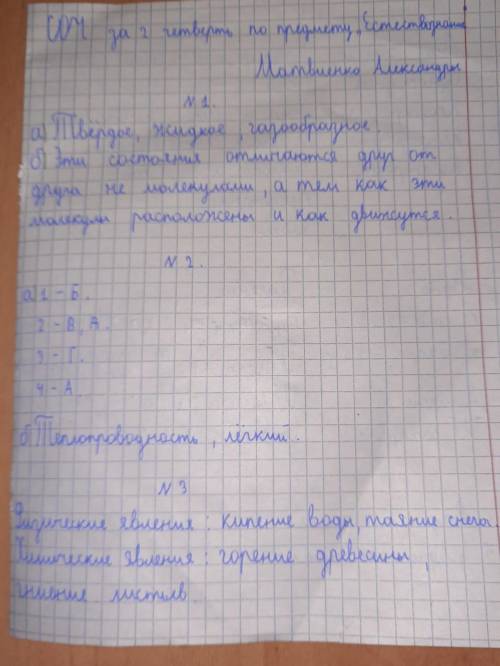 СОЧ за 2 четверть по предмету „Естествознание"
Матвиенко Александры
№ 1.
а) Твёрдое, жидкое, газообразное.
б) Эти состояния отличаются друг от
друга не молекулами, а тем как эти
молекулы расположены и как движутся.
№ 2.
а) 1 - Б.
2 - В, А.
3 - Г.
4 - А.
б) Теплопроводность, лёгкий.
№ 3
Физические явления: кипение воды, таяние снега.
Химические явления: горение древесины,
гниение листьев.